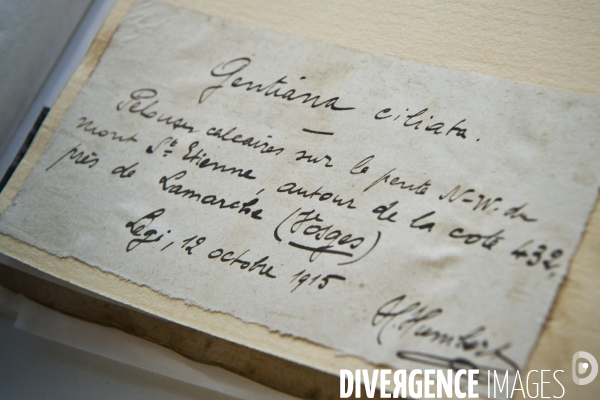 Gentiana ciliata.
Pelouses calcaires sur la pente N-W. du
mont St Etienne, autour de la cote 432.
près de Lamarche (Vosges)
Legi, 12 octobre 1915
H. Humbert
DIVERGENCE IMAGES